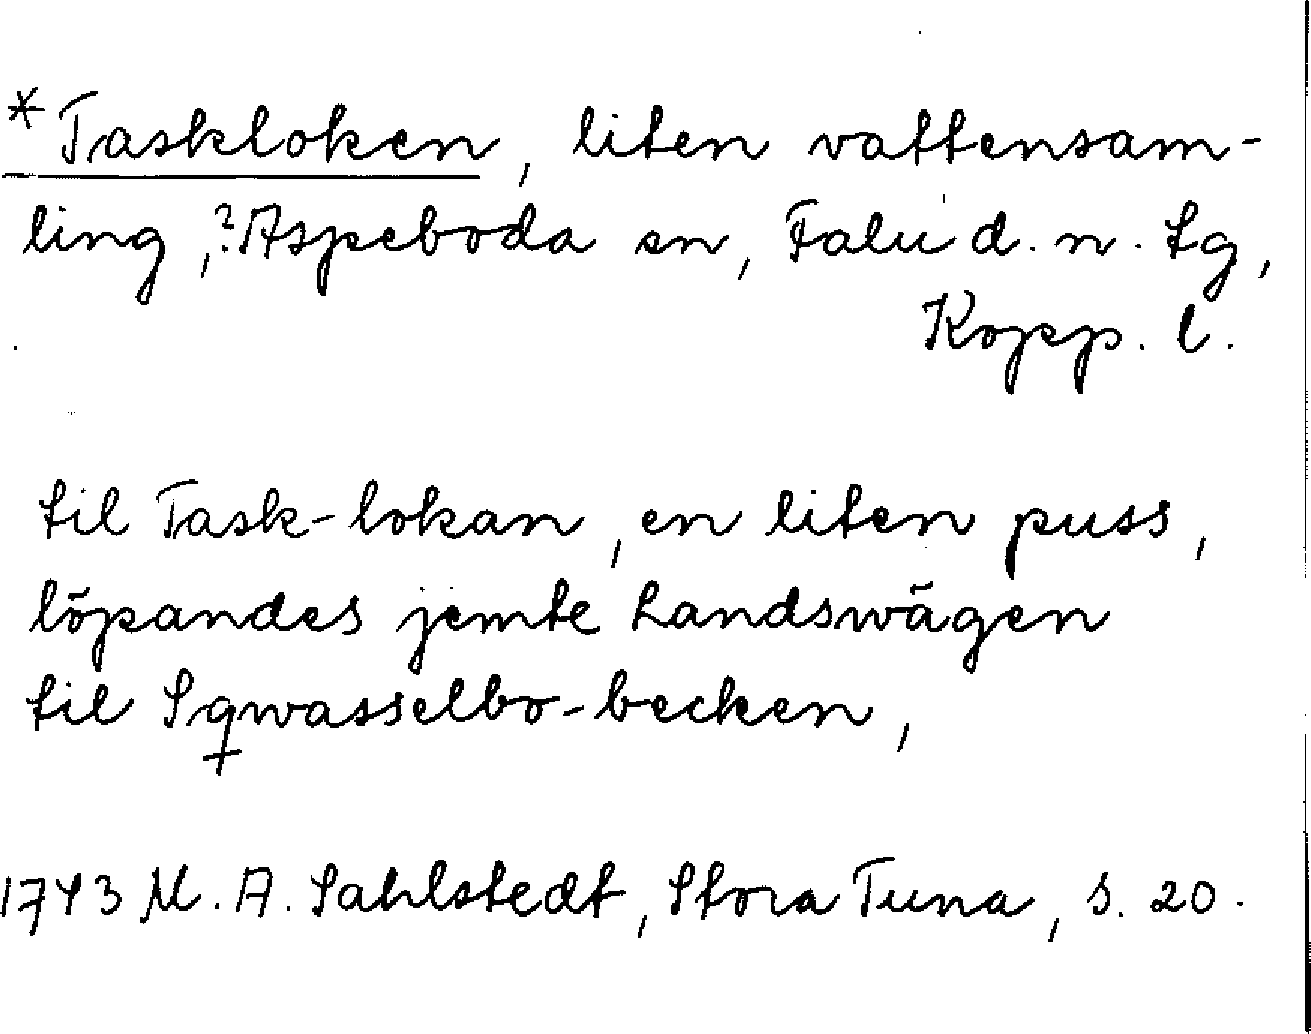 *Taskloken, liten vattensam-
ling, ?Aspeboda sn, Falu d. n. tg,
Kopp. l.
til Task-lokan, en liten puss,
löpandes jemte Landswägen
til Sqwasselbo-becken,
1743 M. A. Sahlstedt, Stora Tuna, s. 20.